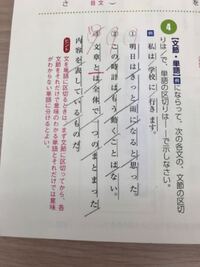 4
【文節・単語】例にならって、次の各文の、文節の区切
りは/で、単語の区切りは―で示しなさい。
例 私は/学校に/行きます。
① 明日はきっと雨になると思った。
② この時計はもう動くことはない。
③ 文章とは全体で一つのまとまった
内容を表しているものだ。
ヒント
文を単語に区切るときは、まず文節に区切ってから、各
文節をそれだけで意味のわかる単語とそれだけでは意味
がわからない単語に分けるとよい。